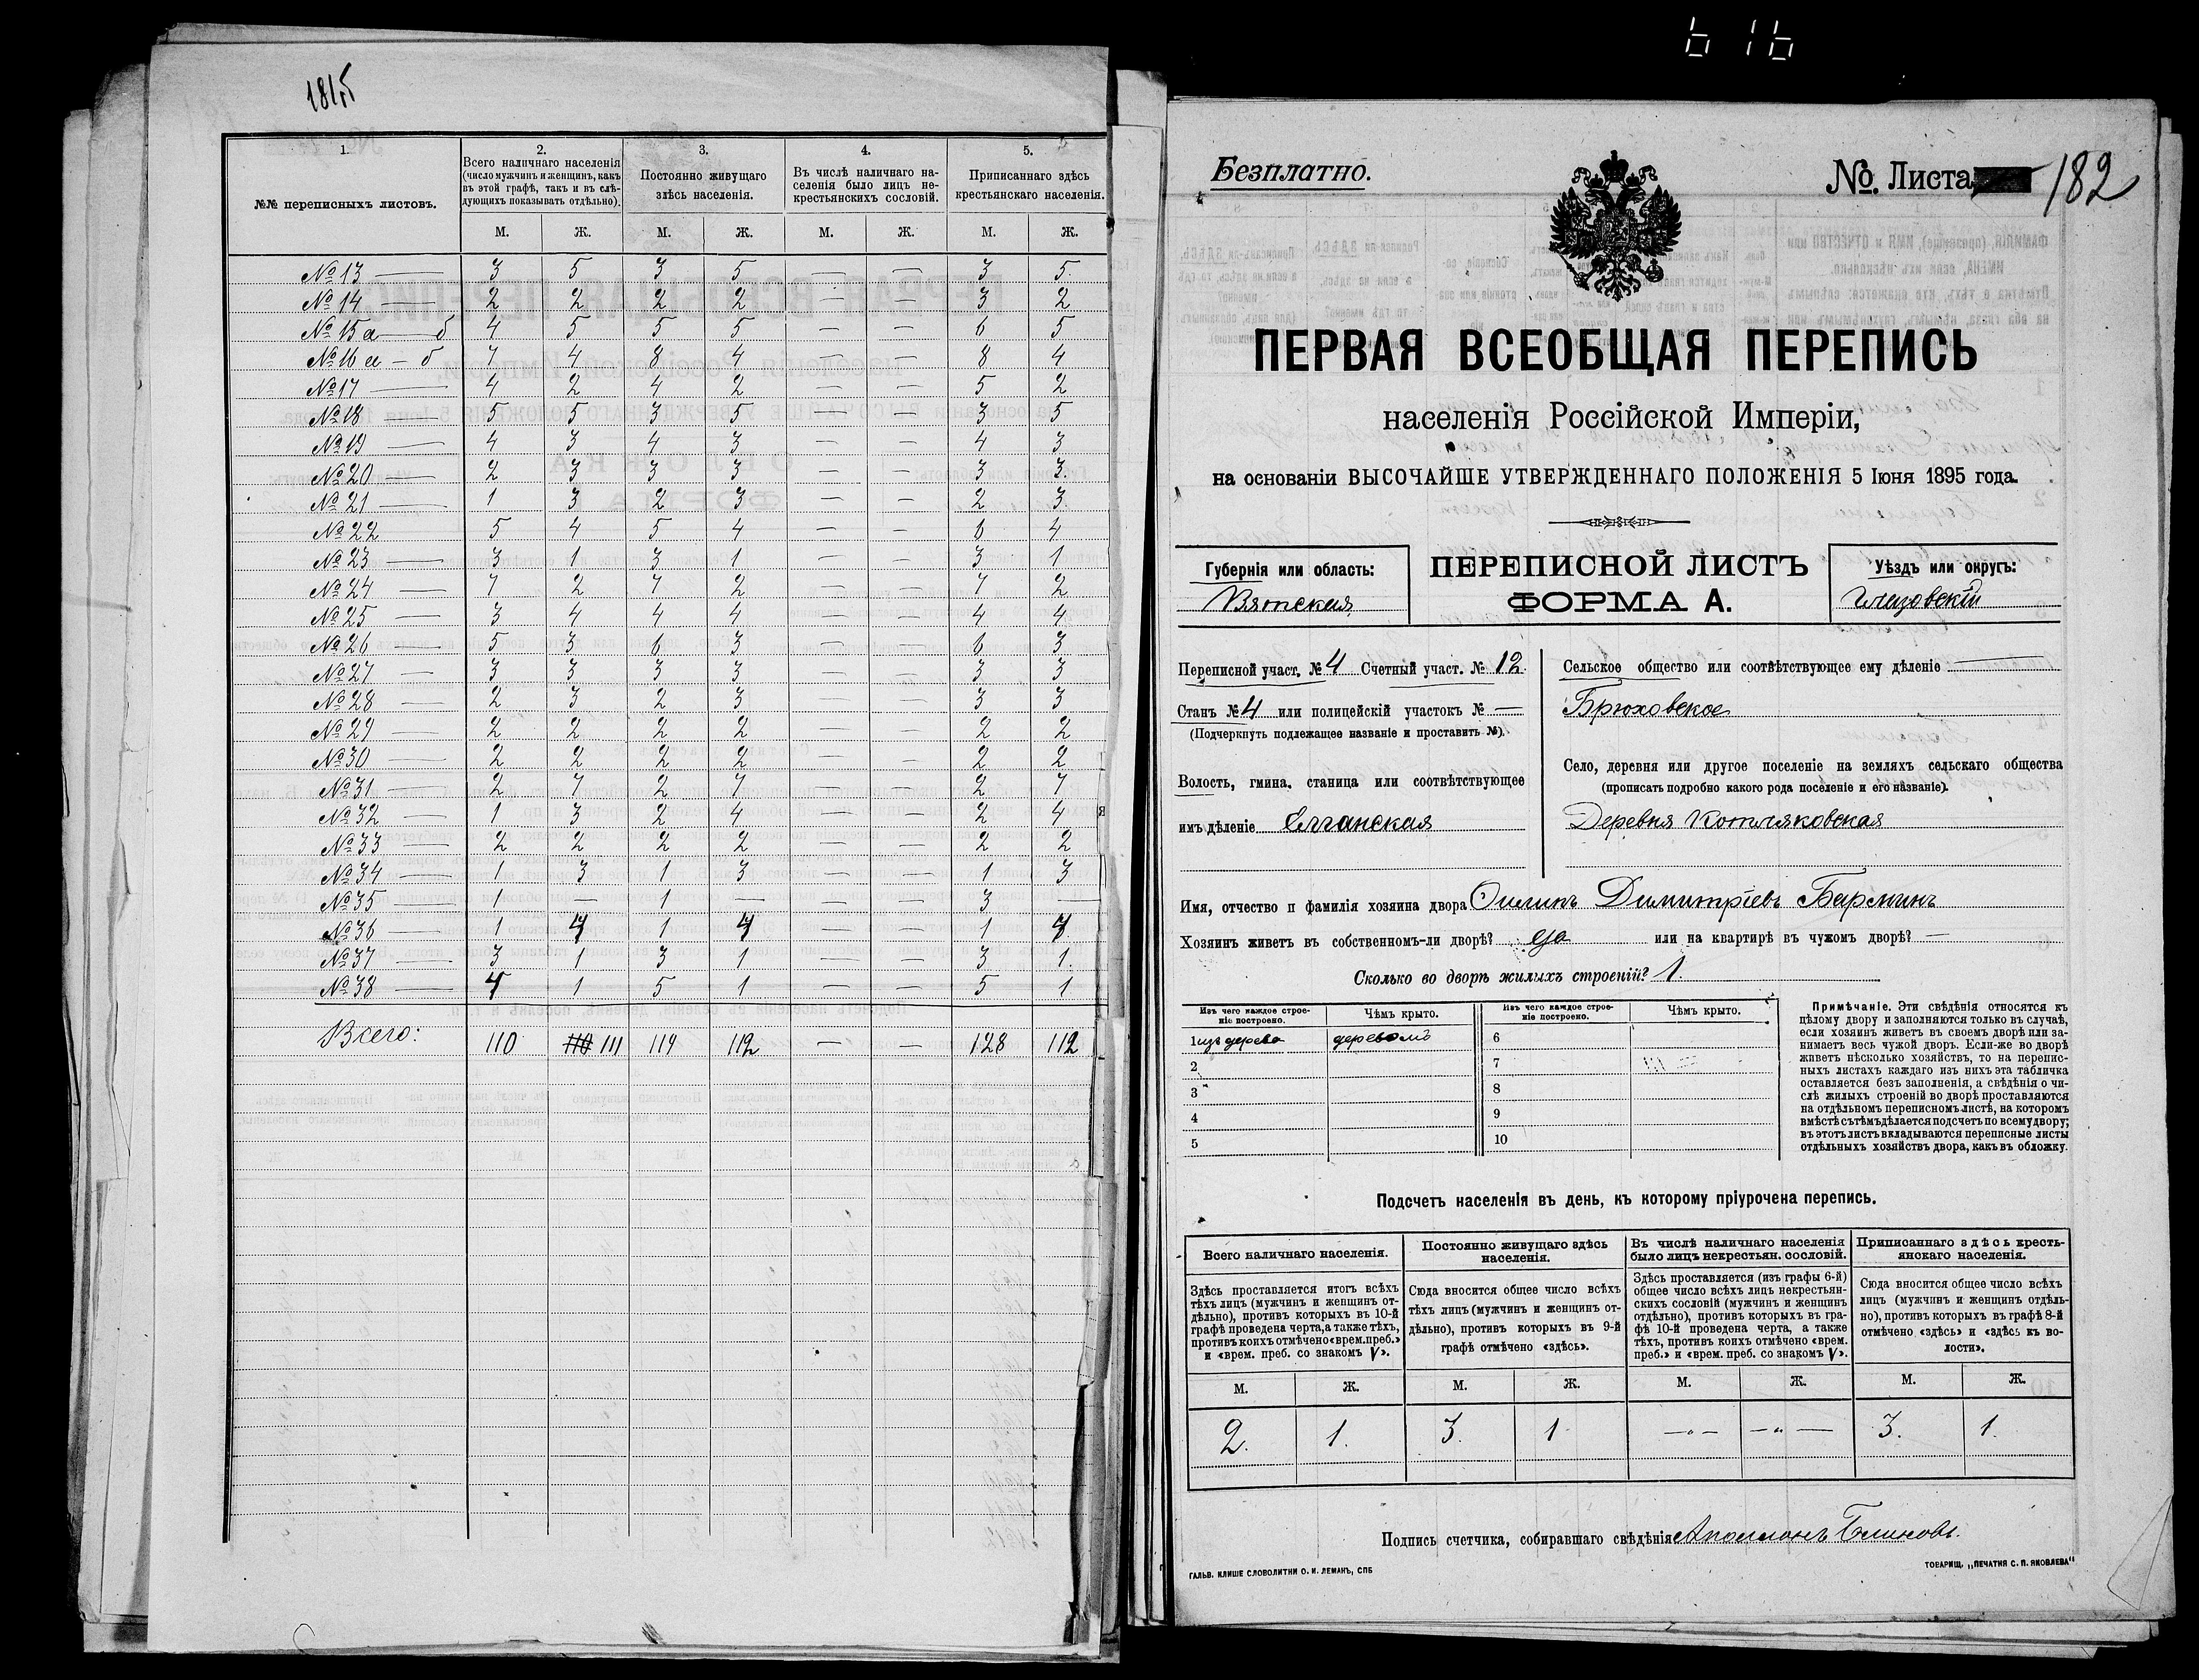 181б
1. 2. 3. 4. 5.
№№ переписныхъ листовъ. Всего наличнаго населенія (число мужчинъ и женщинъ, какъ въ этой графѣ, такъ и въ слѣдующихъ показывать отдѣльно). Постоянно живущаго здѣсь населенія. Въ числѣ наличнаго населенія было лицъ некрестьянскихъ сословій. Приписаннаго здѣсь крестьянскаго населенія.
М. Ж. М. Ж. М. Ж. М. Ж.
№ 13 — 3 5 3 5 — — 3 5
№ 14 — 2 2 2 2 — — 3 2
№ 15 а — б 4 5 5 5 — — 6 5
№ 16 а — б 7 4 8 4 — — 8 4
№ 17 — 4 2 4 2 — — 5 2
№ 18 — 5 5 3 5 — — 3 5
№ 19 — 4 3 4 3 — — 4 3
№ 20 — 2 3 3 3 — — 3 3
№ 21 — 1 3 2 3 — — 2 3
№ 22 5 4 5 4 — — 6 4
№ 23 — 3 1 3 1 — — 3 1
№ 24 — 7 2 7 2 — — 7 2
№ 25 — 3 4 4 4 — — 4 4
№ 26 — 5 3 6 3 — — 6 3
№ 27 — 3 3 3 3 — — 3 3
№ 28 — 2 3 2 3 — — 3 3
№ 29 — 2 2 2 2 — — 2 2
№ 30 — 2 2 2 2 — — 2 2
№ 31 — 2 7 2 7 — — 2 7
№ 32 — 1 3 2 4 — — 2 4
№ 33 — 2 2 2 2 — — 2 2
№ 34 — 1 3 1 3 — — 1 3
№ 35 — 1 — 1 — — — 3 —
№ 36 — 1 4 1 4 — — 1 4
№ 37 — 3 1 3 1 — — 3 1
№ 38 — 4 1 5 1 — — 5 1
Всего: 110 110 111 119 112 — — 128 112
Безплатно.
№. Листа 182
ПЕРВАЯ ВСЕОБЩАЯ ПЕРЕПИСЬ
населенія Россійской Имперіи,
на основаніи ВЫСОЧАЙШЕ УТВЕРЖДЕННАГО ПОЛОЖЕНІЯ 5 Іюня 1895 года.
Губернія или область:
Вятская
ПЕРЕПИСНОЙ ЛИСТЪ
ФОРМА А.
Уѣздъ или округъ:
Глазовскій
Переписной участ. № 4 Счетный участ. № 12.
Станъ № 4 или полицейскій участокъ № —
(Подчеркнуть подлежащее названіе и проставить №).
Волость, гмина, станица или соотвѣтствующее
имъ дѣленіе Елганская
Сельское общество или соотвѣтствующее ему дѣленіе —
Брюховское
Село, деревня или другое поселеніе на земляхъ сельскаго общества
(прописать подробно какого рода поселеніе и его названіе).
Деревня Котляковская
Имя, отчество и фамилія хозяина двора Филипъ Димитріевъ Барминъ
Хозяинъ живетъ въ собственномъ-ли дворѣ? да или на квартирѣ въ чужомъ дворѣ? —
Сколько во дворѣ жилыхъ строеній? 1.
Изъ чего каждое строеніе построено. Чѣмъ крыто. Изъ чего каждое строеніе построено. Чѣмъ крыто.
1 изъ дерева деревомъ 6
2 7
3 8
4 9
5 10
Примѣчаніе. Эти свѣдѣнія относятся къ
цѣлому двору и заполняются только въ случаѣ,
если хозяинъ живетъ въ своемъ дворѣ или за-
нимаетъ весь чужой дворъ. Если-же во дворѣ
живетъ нѣсколько хозяйствъ, то на перепис-
ныхъ листахъ каждаго изъ нихъ эта табличка
оставляется безъ заполненія, а свѣдѣнія о чи-
слѣ жилыхъ строеній во дворѣ проставляются
на отдѣльномъ переписномъ листѣ, на которомъ
вмѣстѣ съ тѣмъ дѣлается подсчетъ по всему двору;
въ этотъ листъ вкладываются переписные листы
отдѣльныхъ хозяйствъ двора, какъ въ обложку.
Подсчетъ населенія въ день, къ которому пріурочена перепись.
Всего наличнаго населенія. Постоянно живущаго здѣсь населенія. Въ числѣ наличнаго населенія было лицъ некрестьян. сословій. Приписаннаго здѣсь крестьянскаго населенія.
Здѣсь проставляется итогъ всѣхъ
тѣхъ лицъ (мужчинъ и женщинъ от-
дѣльно), противъ которыхъ въ 10-й
графѣ проведена черта, а также тѣхъ,
противъ коихъ отмѣчено «врем. преб.»
и «врем. преб. со знакомъ V».
Сюда вносится общее число всѣхъ
тѣхъ лицъ (мужчинъ и женщинъ от-
дѣльно), противъ которыхъ въ 9-й
графѣ отмѣчено «здѣсь».
Здѣсь проставляется (изъ графы 6-й)
общее число всѣхъ лицъ некрестьян-
скихъ сословій (мужчинъ и женщинъ
отдѣльно), противъ которыхъ въ гра-
фѣ 10-й проведена черта, а также
тѣхъ, противъ коихъ отмѣчено «врем.
преб.» и «врем. преб. со знакомъ V».
Сюда вносится общее число всѣхъ
лицъ (мужчинъ и женщинъ отдѣль-
но), противъ которыхъ въ графѣ 8-й
отмѣчено «здѣсь» и «здѣсь къ во-
лости».
М. Ж. М. Ж. М. Ж. М. Ж.
2. 1. 3. 1. —„— —„— 3. 1.
Подпись счетчика, собиравшаго свѣдѣнія Аполлонъ Блиновъ.
ГАЛЬВ. КЛИШЕ СЛОВОЛИТНИ О. И. ЛЕМАНЪ, СПБ
ТОВАРИЩ. „ПЕЧАТНЯ С. П. ЯКОВЛЕВА"